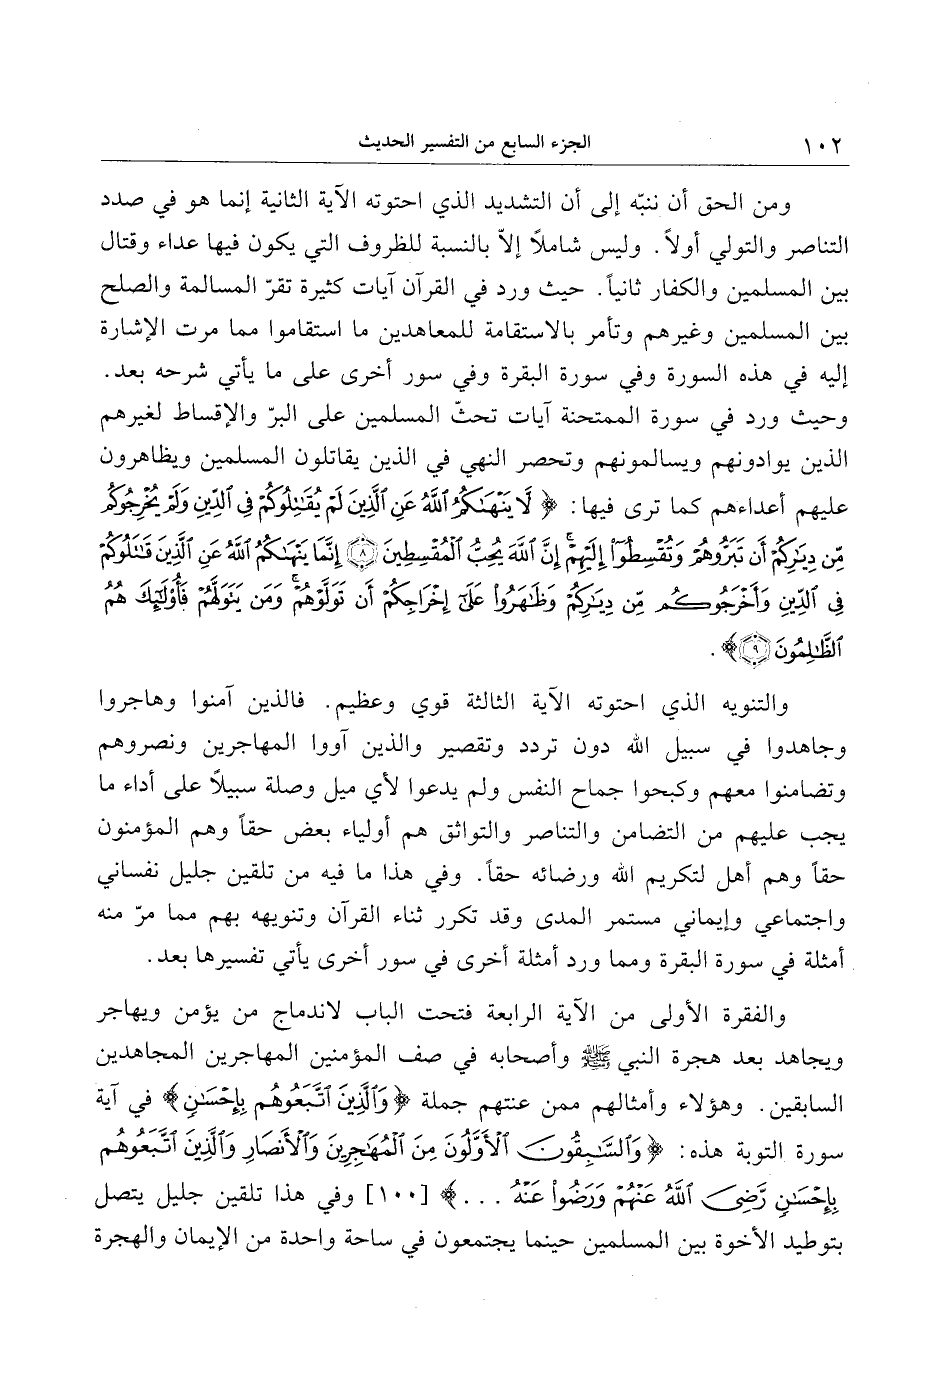 ١٠٢ الجزء السابع من التفسير الحديث
ومن الحق أن ننبّه إلى أن التشديد الذي احتوته الآية الثانية إنما هو في صدد
التناصر والتولي أولاً. وليس شاملاً إلاّ بالنسبة للظروف التي يكون فيها عداء وقتال
بين المسلمين والكفار ثانياً. حيث ورد في القرآن آيات كثيرة تقرّ المسالمة والصلح
بين المسلمين وغيرهم وتأمر بالاستقامة للمعاهدين ما استقاموا مما مرت الإشارة
إليه في هذه السورة وفي سورة البقرة وفي سور أخرى على ما يأتي شرحه بعد.
وحيث ورد في سورة الممتحنة آيات تحثّ المسلمين على البرّ والإقساط لغيرهم
الذين يوادونهم ويسالمونهم وتحصر النهي في الذين يقاتلون المسلمين ويظاهرون
عليهم أعداءهم كما ترى فيها: ﴿ لَّا يَنْهَىٰكُمُ ٱللَّهُ عَنِ ٱلَّذِينَ لَمْ يُقَٰتِلُوكُمْ فِي ٱلدِّينِ وَلَمْ يُخْرِجُوكُم
مِّن دِيَٰرِكُمْ أَن تَبَرُّوهُمْ وَتُقْسِطُوٓا۟ إِلَيْهِمْ ۚ إِنَّ ٱللَّهَ يُحِبُّ ٱلْمُقْسِطِينَ ﴿٨﴾ إِنَّمَا يَنْهَىٰكُمُ ٱللَّهُ عَنِ ٱلَّذِينَ قَٰتَلُوكُمْ
فِي ٱلدِّينِ وَأَخْرَجُوكُم مِّن دِيَٰرِكُمْ وَظَٰهَرُوا۟ عَلَىٰٓ إِخْرَاجِكُمْ أَن تَوَلَّوْهُمْ ۚ وَمَن يَتَوَلَّهُمْ فَأُو۟لَٰٓئِكَ هُمُ
ٱلظَّٰلِمُونَ ﴿٩﴾﴾ .
والتنويه الذي احتوته الآية الثالثة قوي وعظيم. فالذين آمنوا وهاجروا
وجاهدوا في سبيل الله دون تردد وتقصير والذين آووا المهاجرين ونصروهم
وتضامنوا معهم وكبحوا جماح النفس ولم يدعوا لأي ميل وصلة سبيلاً على أداء ما
يجب عليهم من التضامن والتناصر والتواثق هم أولياء بعض حقاً وهم المؤمنون
حقاً وهم أهل لتكريم الله ورضائه حقاً. وفي هذا ما فيه من تلقين جليل نفساني
واجتماعي وإيماني مستمر المدى وقد تكرر ثناء القرآن وتنويهه بهم مما مرّ منه
أمثلة في سورة البقرة ومما ورد أمثلة أخرى في سور أخرى يأتي تفسيرها بعد.
والفقرة الأولى من الآية الرابعة فتحت الباب لاندماج من يؤمن ويهاجر
ويجاهد بعد هجرة النبي ﷺ وأصحابه في صف المؤمنين المهاجرين المجاهدين
السابقين. وهؤلاء وأمثالهم ممن عنتهم جملة ﴿ وَٱلَّذِينَ ٱتَّبَعُوهُم بِإِحْسَٰنٍ ﴾ في آية
سورة التوبة هذه: ﴿ وَٱلسَّٰبِقُونَ ٱلْأَوَّلُونَ مِنَ ٱلْمُهَٰجِرِينَ وَٱلْأَنصَارِ وَٱلَّذِينَ ٱتَّبَعُوهُم
بِإِحْسَٰنٍ رَّضِيَ ٱللَّهُ عَنْهُمْ وَرَضُوا۟ عَنْهُ ... ﴾ [١٠٠] وفي هذا تلقين جليل يتصل
بتوطيد الأخوة بين المسلمين حينما يجتمعون في ساحة واحدة من الإيمان والهجرة